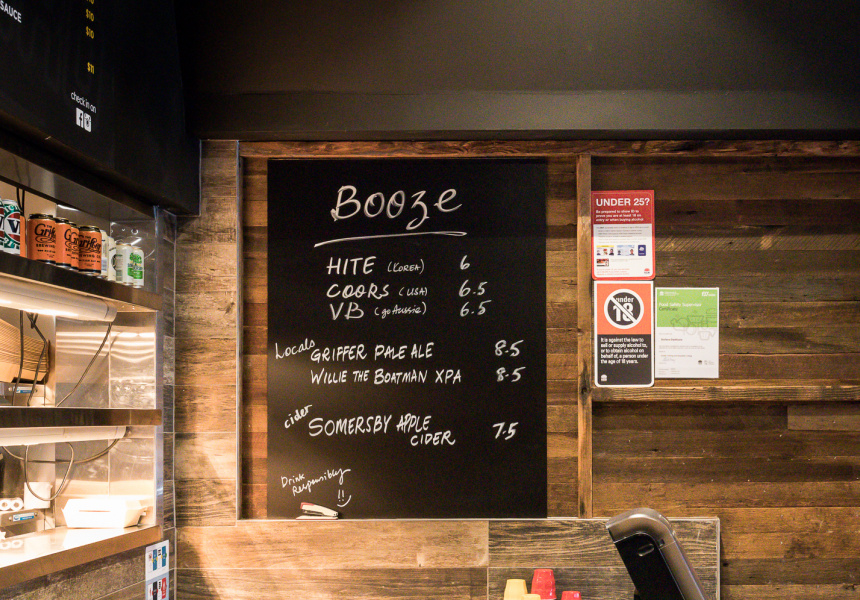 SAUCE
$10
$10
$11
check in on
Booze
HITE (KOREA) 6
COORS (USA) 6.5
VB (go Aussie) 6.5
Locals
GRIFFER PALE ALE 8.5
WILLIE THE BOATMAN XPA 8.5
cider
SOMERSBY APPLE
CIDER 7.5
Drink
Responsibly
!!
UNDER 25?
Be prepared to show ID to
prove you are at least 18 only
under
18
It is against the law to
sell or supply alcohol to,
or to obtain alcohol on
behalf of, a person under
the age of 18 years.
Food Safety Supervisor
Certificate